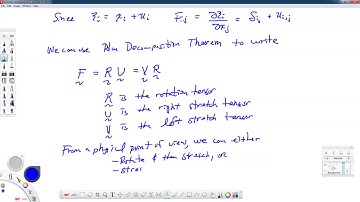 Since z_i = x_i + u_i    F_ij = ∂z_i/∂x_j = δ_ij + u_i,j
We can use Polar Decomposition Theorem to write
F = R U = V R
R is the rotation tensor
U is the right stretch tensor
V is the left stretch tensor
From a physical point of view, we can either
- Rotate & then stretch, or
- stre